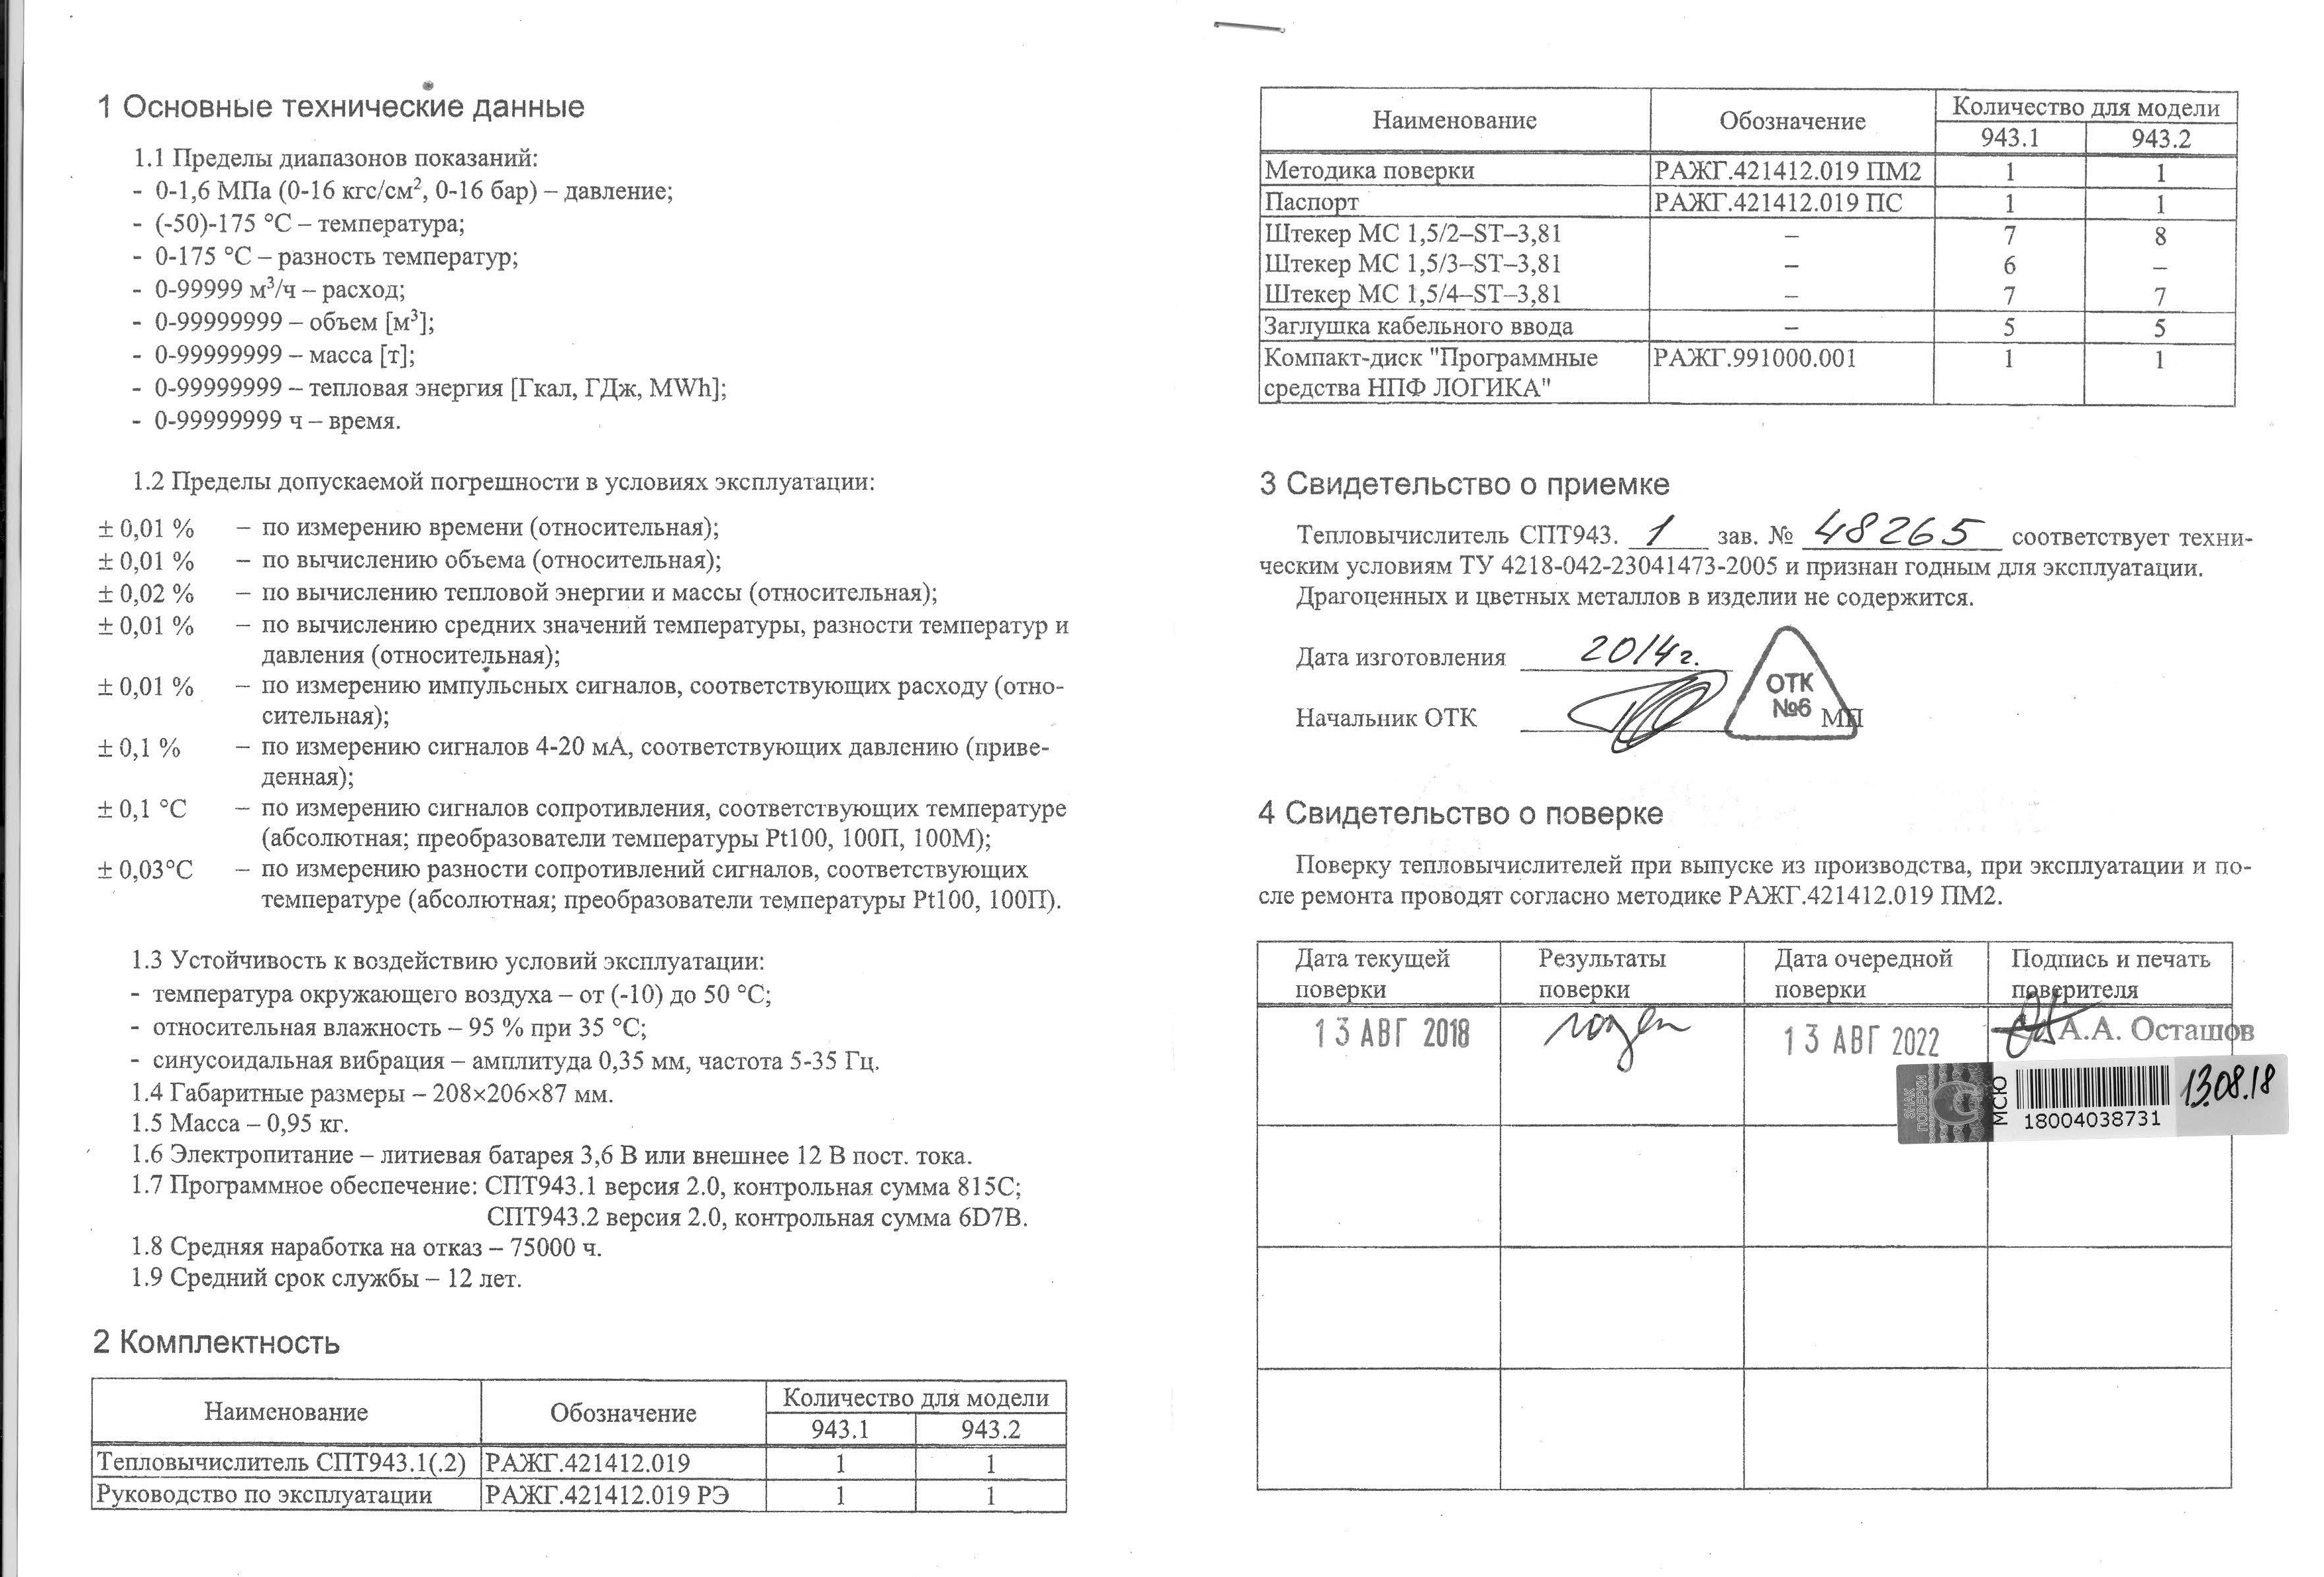 1 Основные технические данные
1.1 Пределы диапазонов показаний:
- 0-1,6 МПа (0-16 кгс/см², 0-16 бар) – давление;
- (-50)-175 °С – температура;
- 0-175 °С – разность температур;
- 0-99999 м³/ч – расход;
- 0-99999999 – объем [м³];
- 0-99999999 – масса [т];
- 0-99999999 – тепловая энергия [Гкал, ГДж, MWh];
- 0-99999999 ч – время.
1.2 Пределы допускаемой погрешности в условиях эксплуатации:
± 0,01 % – по измерению времени (относительная);
± 0,01 % – по вычислению объема (относительная);
± 0,02 % – по вычислению тепловой энергии и массы (относительная);
± 0,01 % – по вычислению средних значений температуры, разности температур и
давления (относительная);
± 0,01 % – по измерению импульсных сигналов, соответствующих расходу (отно-
сительная);
± 0,1 % – по измерению сигналов 4-20 мА, соответствующих давлению (приве-
денная);
± 0,1 °С – по измерению сигналов сопротивления, соответствующих температуре
(абсолютная; преобразователи температуры Pt100, 100П, 100М);
± 0,03°С – по измерению разности сопротивлений сигналов, соответствующих
температуре (абсолютная; преобразователи температуры Pt100, 100П).
1.3 Устойчивость к воздействию условий эксплуатации:
- температура окружающего воздуха – от (-10) до 50 °С;
- относительная влажность – 95 % при 35 °С;
- синусоидальная вибрация – амплитуда 0,35 мм, частота 5-35 Гц.
1.4 Габаритные размеры – 208×206×87 мм.
1.5 Масса – 0,95 кг.
1.6 Электропитание – литиевая батарея 3,6 В или внешнее 12 В пост. тока.
1.7 Программное обеспечение: СПТ943.1 версия 2.0, контрольная сумма 815С;
СПТ943.2 версия 2.0, контрольная сумма 6D7B.
1.8 Средняя наработка на отказ – 75000 ч.
1.9 Средний срок службы – 12 лет.
2 Комплектность
Наименование Обозначение Количество для модели
943.1 943.2
Тепловычислитель СПТ943.1(.2) РАЖГ.421412.019 1 1
Руководство по эксплуатации РАЖГ.421412.019 РЭ 1 1
Наименование Обозначение Количество для модели
943.1 943.2
Методика поверки РАЖГ.421412.019 ПМ2 1 1
Паспорт РАЖГ.421412.019 ПС 1 1
Штекер МС 1,5/2–ST–3,81 – 7 8
Штекер МС 1,5/3–ST–3,81 – 6 –
Штекер МС 1,5/4–ST–3,81 – 7 7
Заглушка кабельного ввода – 5 5
Компакт-диск "Программные РАЖГ.991000.001 1 1
средства НПФ ЛОГИКА"
3 Свидетельство о приемке
Тепловычислитель СПТ943. 1 зав. № 48265 соответствует техни-
ческим условиям ТУ 4218-042-23041473-2005 и признан годным для эксплуатации.
Драгоценных и цветных металлов в изделии не содержится.
Дата изготовления 2014г.
ОТК
№6
Начальник ОТК МП
4 Свидетельство о поверке
Поверку тепловычислителей при выпуске из производства, при эксплуатации и по-
сле ремонта проводят согласно методике РАЖГ.421412.019 ПМ2.
Дата текущей Результаты Дата очередной Подпись и печать
поверки поверки поверки поверителя
13 АВГ 2018 годен 13 АВГ 2022 А.А. Осташов
ЗНАК
ПОВЕРКИ
МСЮ
18004038731
13.08.18